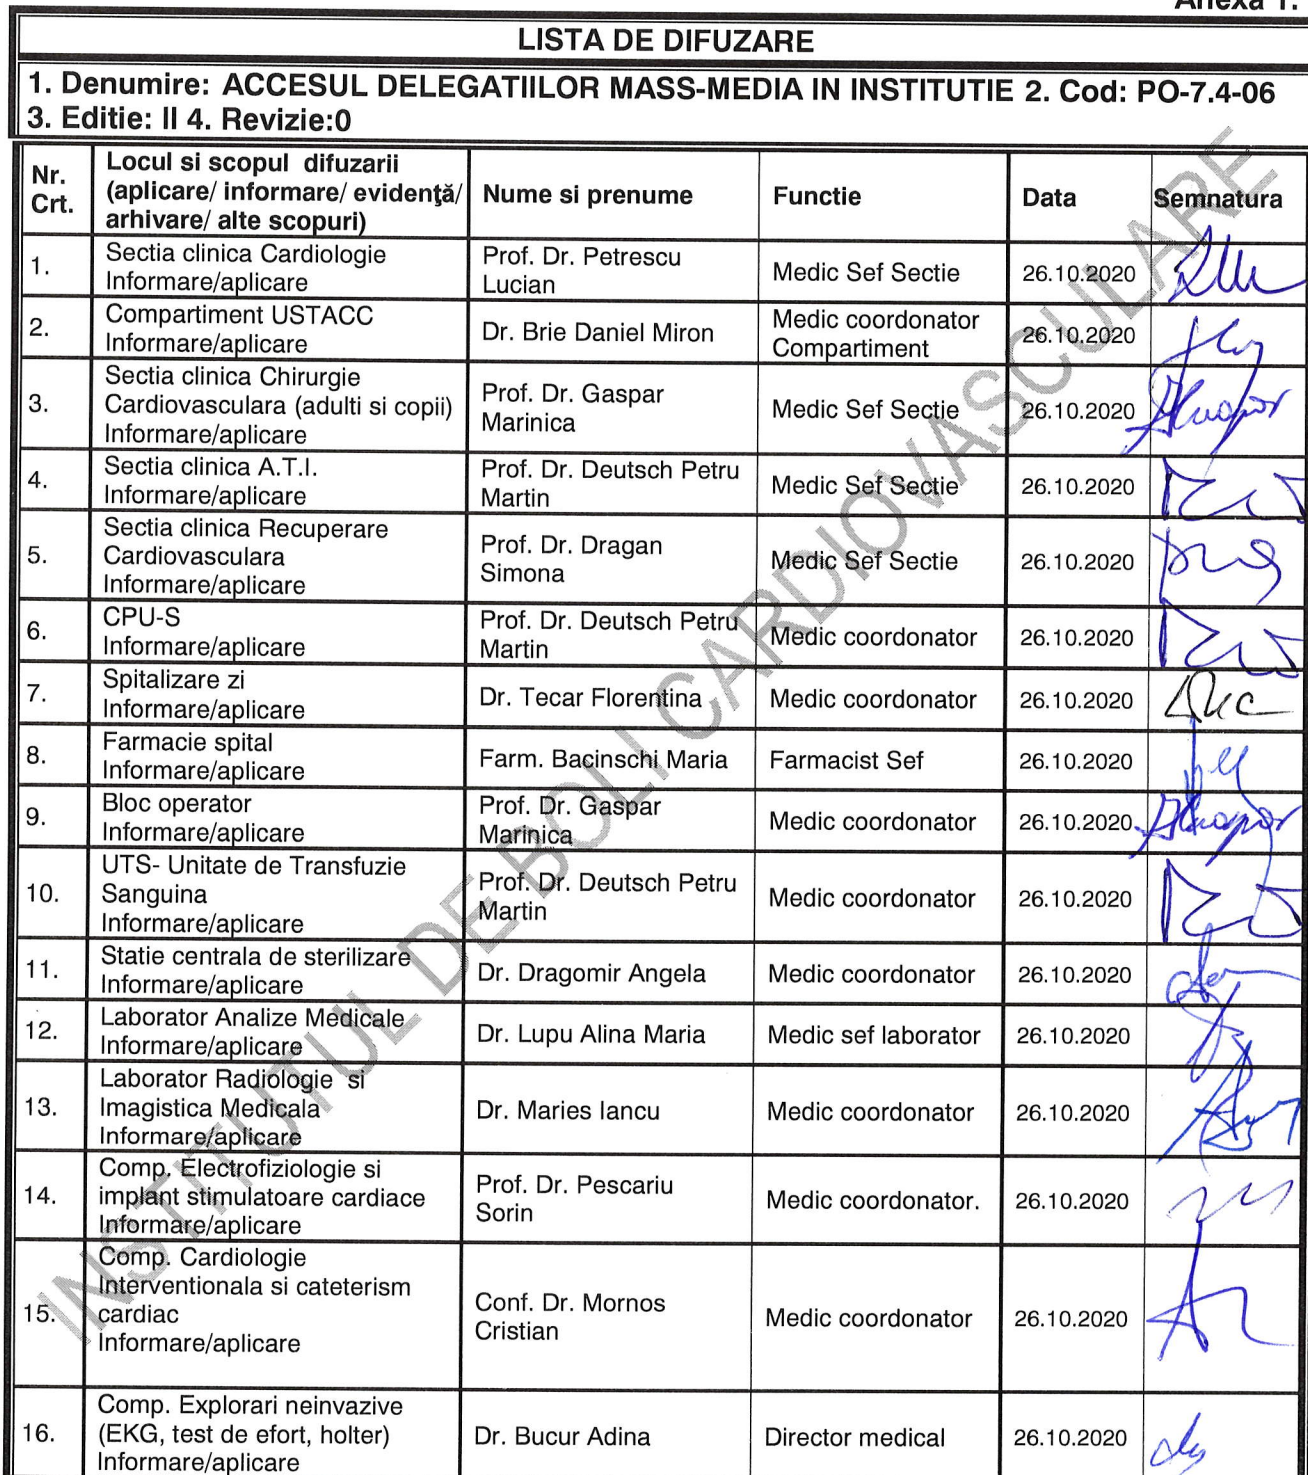 Anexa 1.
LISTA DE DIFUZARE
1. Denumire: ACCESUL DELEGATIILOR MASS-MEDIA IN INSTITUTIE 2. Cod: PO-7.4-06
3. Editie: II 4. Revizie:0
Nr. Crt.
Locul si scopul difuzarii
(aplicare/ informare/ evidenţă/
arhivare/ alte scopuri)
Nume si prenume
Functie
Data
Semnatura
1.
Sectia clinica Cardiologie
Informare/aplicare
Prof. Dr. Petrescu
Lucian
Medic Sef Sectie
26.10.2020
2.
Compartiment USTACC
Informare/aplicare
Dr. Brie Daniel Miron
Medic coordonator
Compartiment
26.10.2020
3.
Sectia clinica Chirurgie
Cardiovasculara (adulti si copii)
Informare/aplicare
Prof. Dr. Gaspar
Marinica
Medic Sef Sectie
26.10.2020
4.
Sectia clinica A.T.I.
Informare/aplicare
Prof. Dr. Deutsch Petru
Martin
Medic Sef Sectie
26.10.2020
5.
Sectia clinica Recuperare
Cardiovasculara
Informare/aplicare
Prof. Dr. Dragan
Simona
Medic Sef Sectie
26.10.2020
6.
CPU-S
Informare/aplicare
Prof. Dr. Deutsch Petru
Martin
Medic coordonator
26.10.2020
7.
Spitalizare zi
Informare/aplicare
Dr. Tecar Florentina
Medic coordonator
26.10.2020
8.
Farmacie spital
Informare/aplicare
Farm. Bacinschi Maria
Farmacist Sef
26.10.2020
9.
Bloc operator
Informare/aplicare
Prof. Dr. Gaspar
Marinica
Medic coordonator
26.10.2020
10.
UTS- Unitate de Transfuzie
Sanguina
Informare/aplicare
Prof. Dr. Deutsch Petru
Martin
Medic coordonator
26.10.2020
11.
Statie centrala de sterilizare
Informare/aplicare
Dr. Dragomir Angela
Medic coordonator
26.10.2020
12.
Laborator Analize Medicale
Informare/aplicare
Dr. Lupu Alina Maria
Medic sef laborator
26.10.2020
13.
Laborator Radiologie si
Imagistica Medicala
Informare/aplicare
Dr. Maries Iancu
Medic coordonator
26.10.2020
14.
Comp. Electrofiziologie si
implant stimulatoare cardiace
Informare/aplicare
Prof. Dr. Pescariu
Sorin
Medic coordonator.
26.10.2020
15.
Comp. Cardiologie
Interventionala si cateterism
cardiac
Informare/aplicare
Conf. Dr. Mornos
Cristian
Medic coordonator
26.10.2020
16.
Comp. Explorari neinvazive
(EKG, test de efort, holter)
Informare/aplicare
Dr. Bucur Adina
Director medical
26.10.2020
INSTITUTUL DE BOLI CARDIOVASCULARE